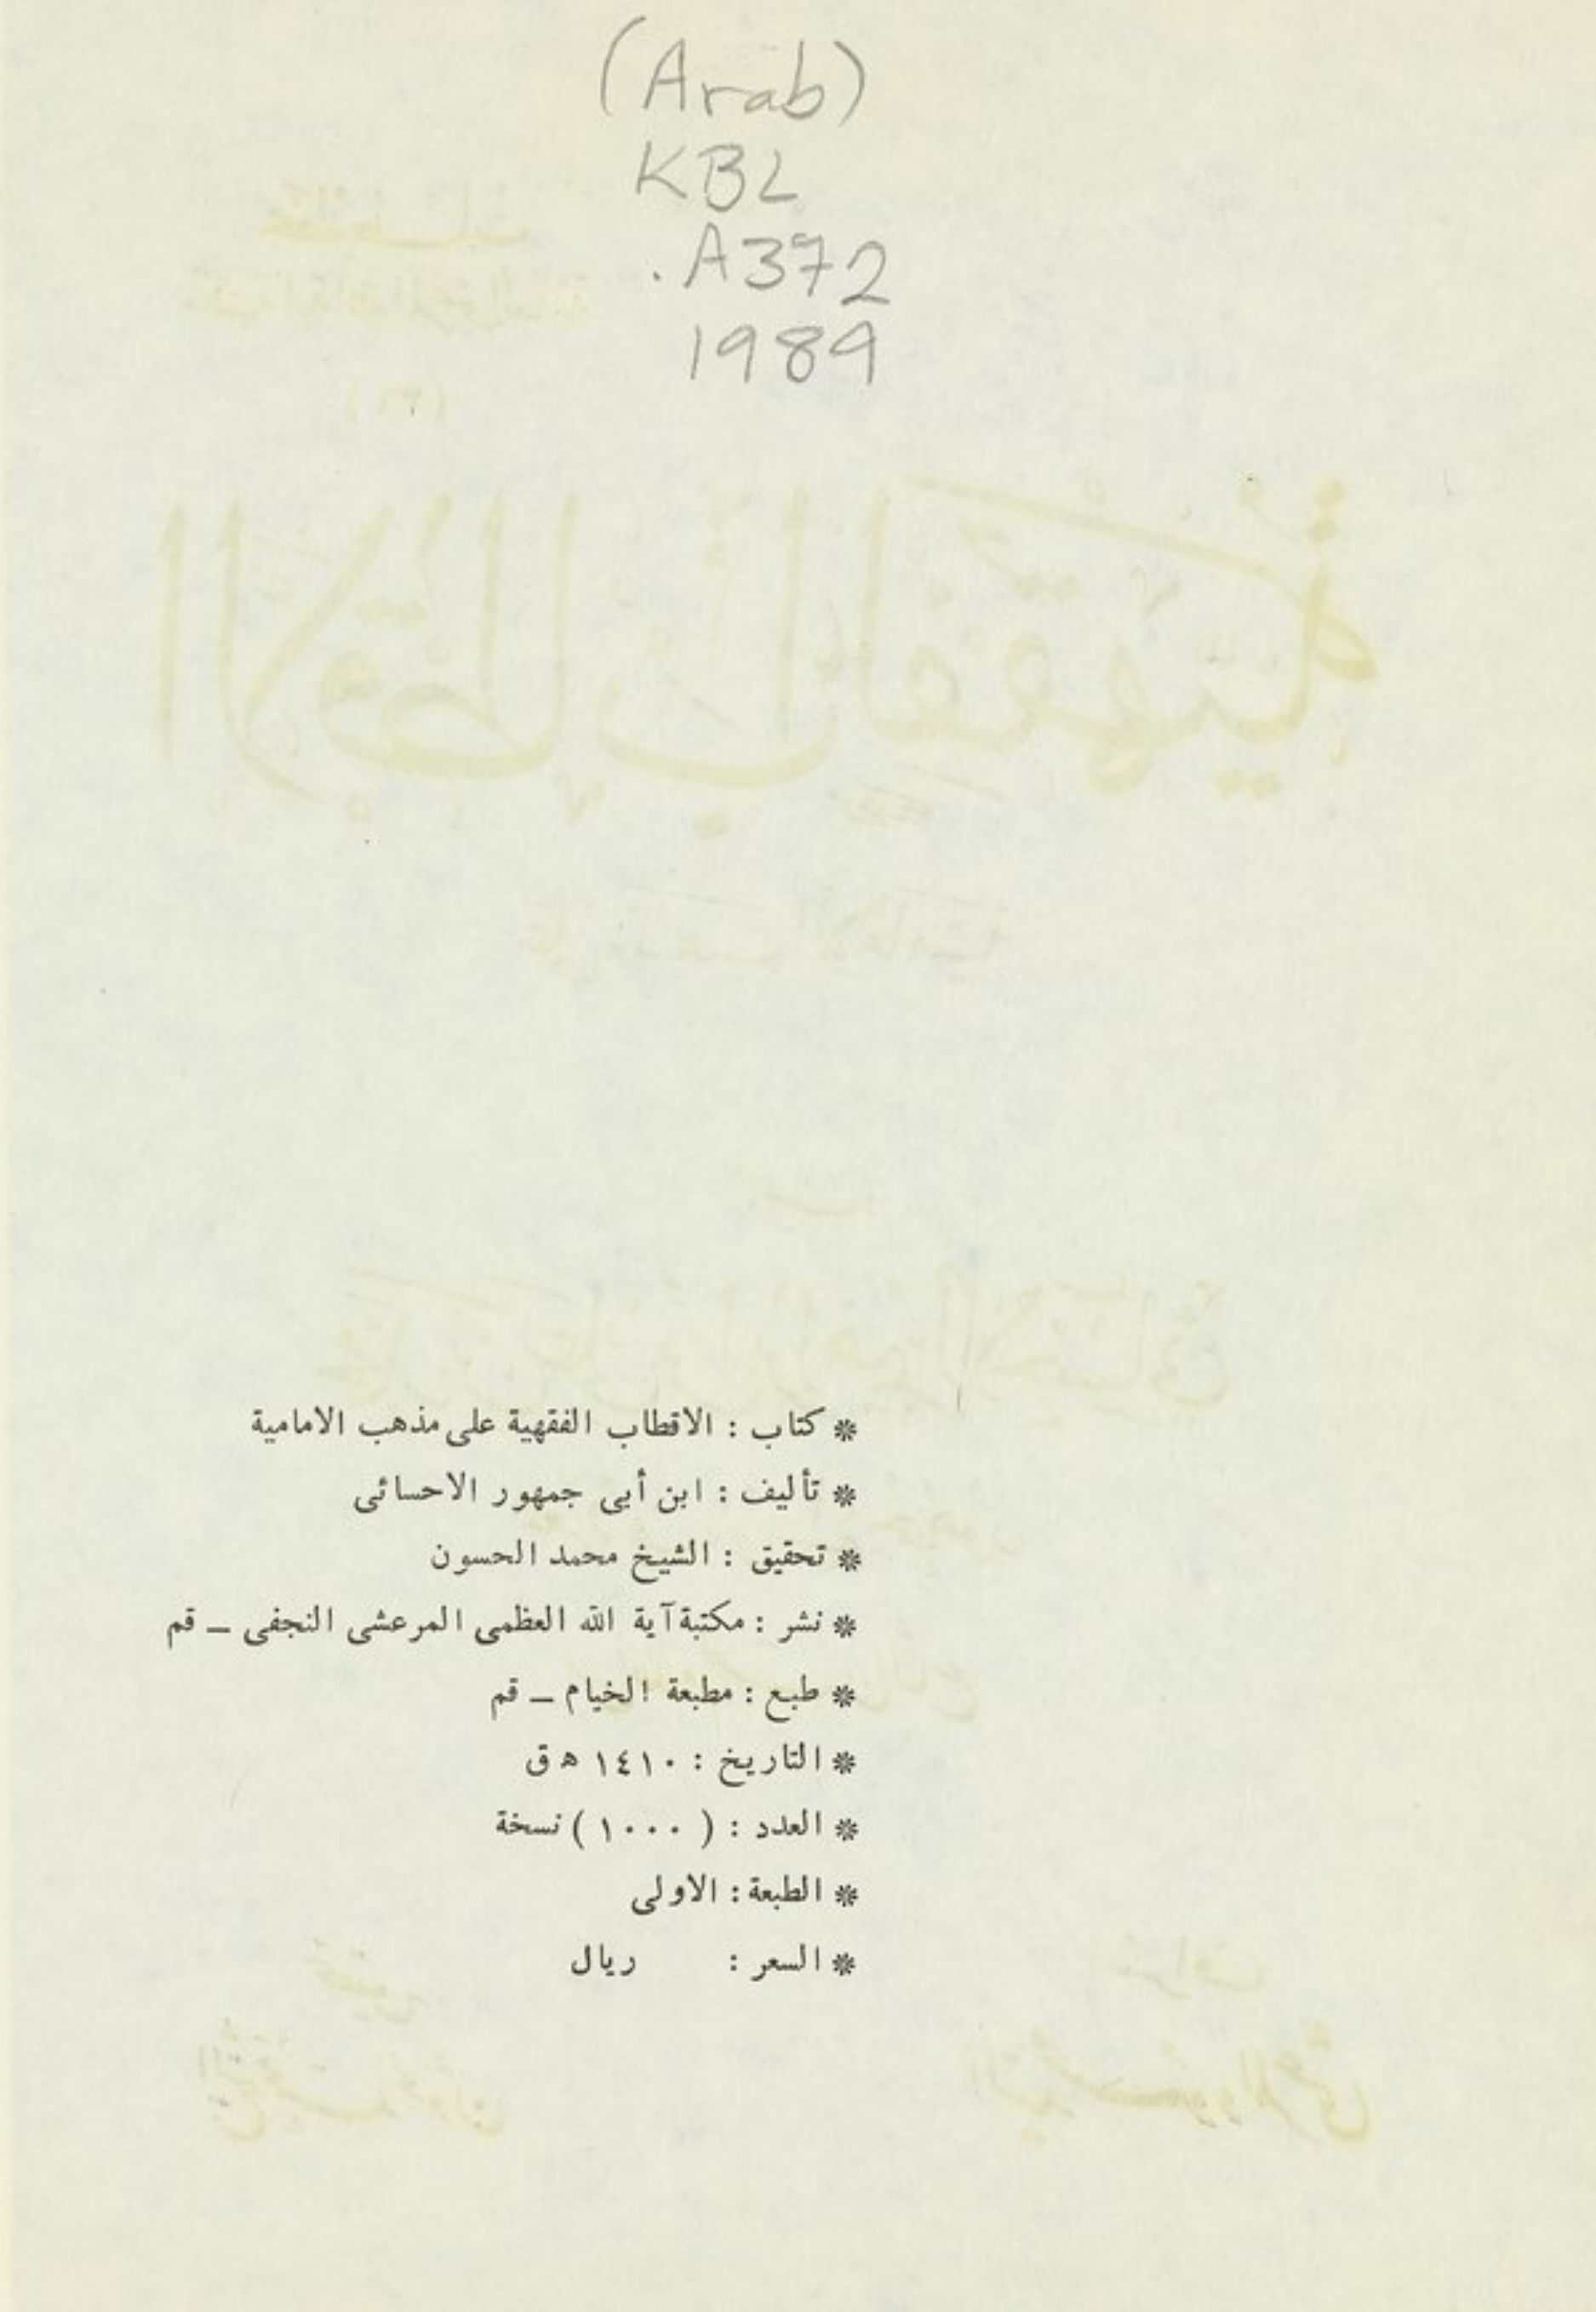 (Arab)
KBL
.A372
1989
* كتاب : الاقطاب الفقهية على مذهب الامامية
* تأليف : ابن أبى جمهور الاحسائى
* تحقيق : الشيخ محمد الحسون
* نشر : مكتبة آية الله العظمى المرعشى النجفى ــ قم
* طبع : مطبعة الخيام ــ قم
* التاريخ : ١٤١٠ ه ق
* العدد : ( ١٠٠٠ ) نسخة
* الطبعة : الاولى
* السعر : ريال